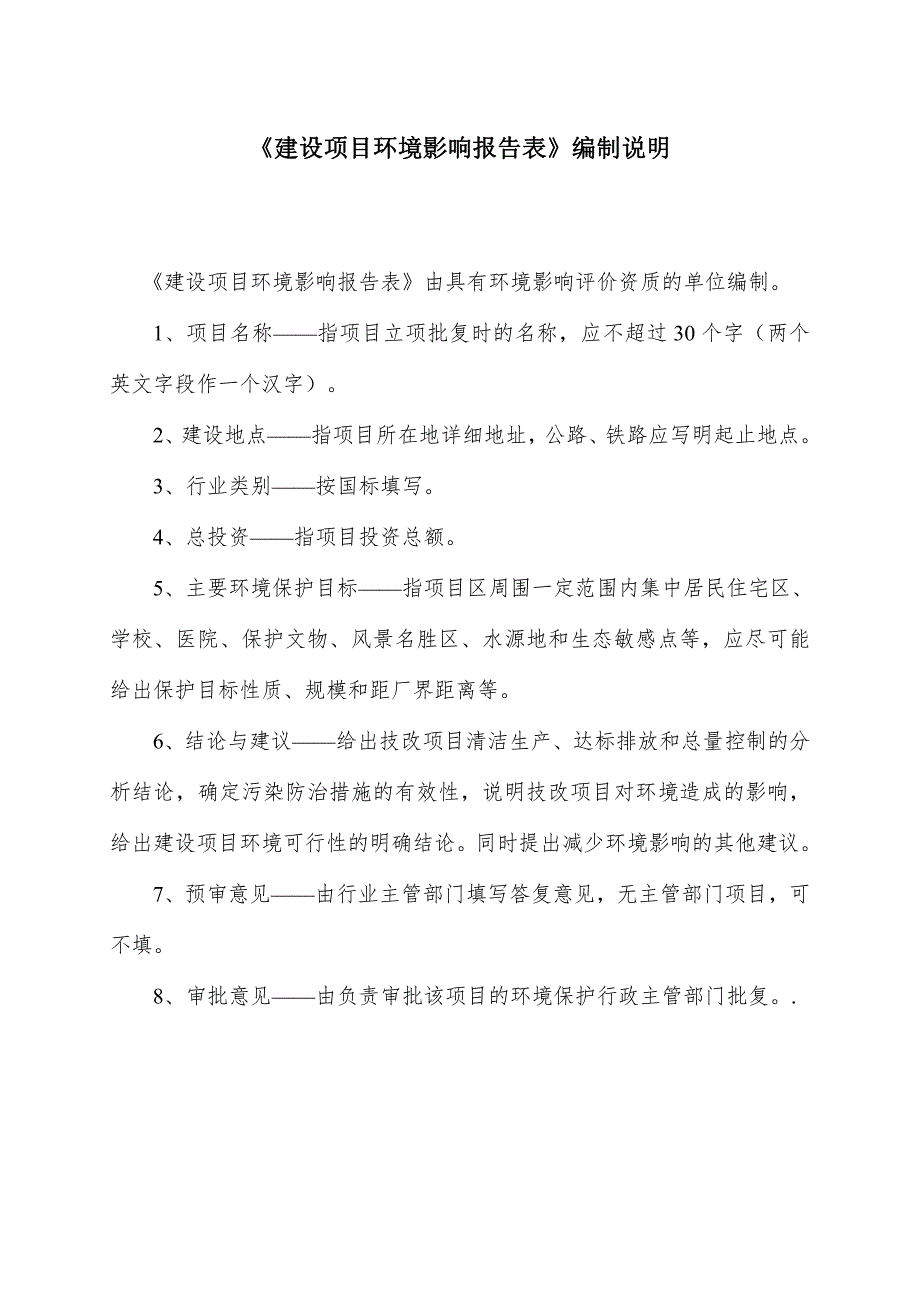 《建设项目环境影响报告表》编制说明
《建设项目环境影响报告表》由具有环境影响评价资质的单位编制。
1、项目名称——指项目立项批复时的名称，应不超过 30 个字（两个
英文字段作一个汉字）。
2、建设地点——指项目所在地详细地址，公路、铁路应写明起止地点。
3、行业类别——按国标填写。
4、总投资——指项目投资总额。
5、主要环境保护目标——指项目区周围一定范围内集中居民住宅区、
学校、医院、保护文物、风景名胜区、水源地和生态敏感点等，应尽可能
给出保护目标性质、规模和距厂界距离等。
6、结论与建议——给出技改项目清洁生产、达标排放和总量控制的分
析结论，确定污染防治措施的有效性，说明技改项目对环境造成的影响，
给出建设项目环境可行性的明确结论。同时提出减少环境影响的其他建议。
7、预审意见——由行业主管部门填写答复意见，无主管部门项目，可
不填。
8、审批意见——由负责审批该项目的环境保护行政主管部门批复。.